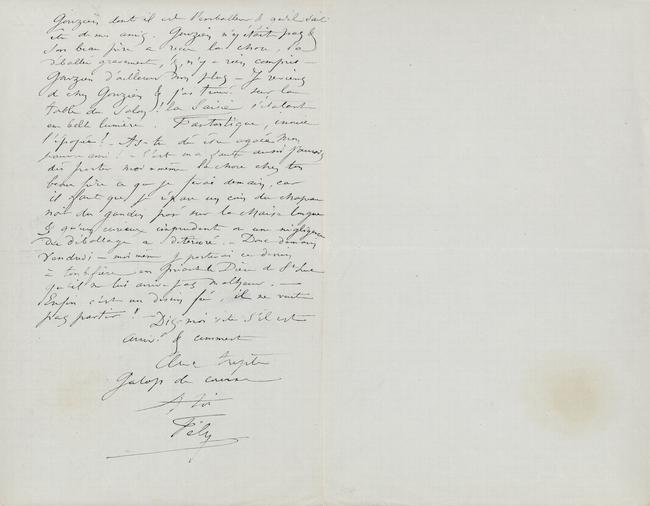 Gouzien dont il est l'emballeur & qu'il sait
être de mes amis. Gouzien n'y était pas &
son beau père a reçu la chose, l'a
déballée gravement, & n'y a rien compris –
Gouzien d'ailleurs non plus – Je reviens
de chez Gouzien & j'ai trouvé sur la
table du Salon ! la Saisie s'étalant
en belle lumière. Fantastique, inouïe
l'épopée ! – As-tu dû être agacé mon
pauvre ami ! – C'est ma faute aussi j'aurais
dû porter moi-même la chose chez ton
beau frère ce que je ferai demain, car
il faut que je répare un coin du chapeau
noir du gandin posé sur la chaise longue
& qu'un curieux imprudent ou une négligence
de déballage a détérioré. – Donc demain
Vendredi – moi même je porterai ce dessin
à ton frère en priant le Dieu de St Luc
qu'il ne lui arrive pas malheur. –
Enfin c'est un dessin fée, il ne veut
pas partir ! – Dis-moi vite s'il est
arrivé & comment
Galop de course
à toi
Fély